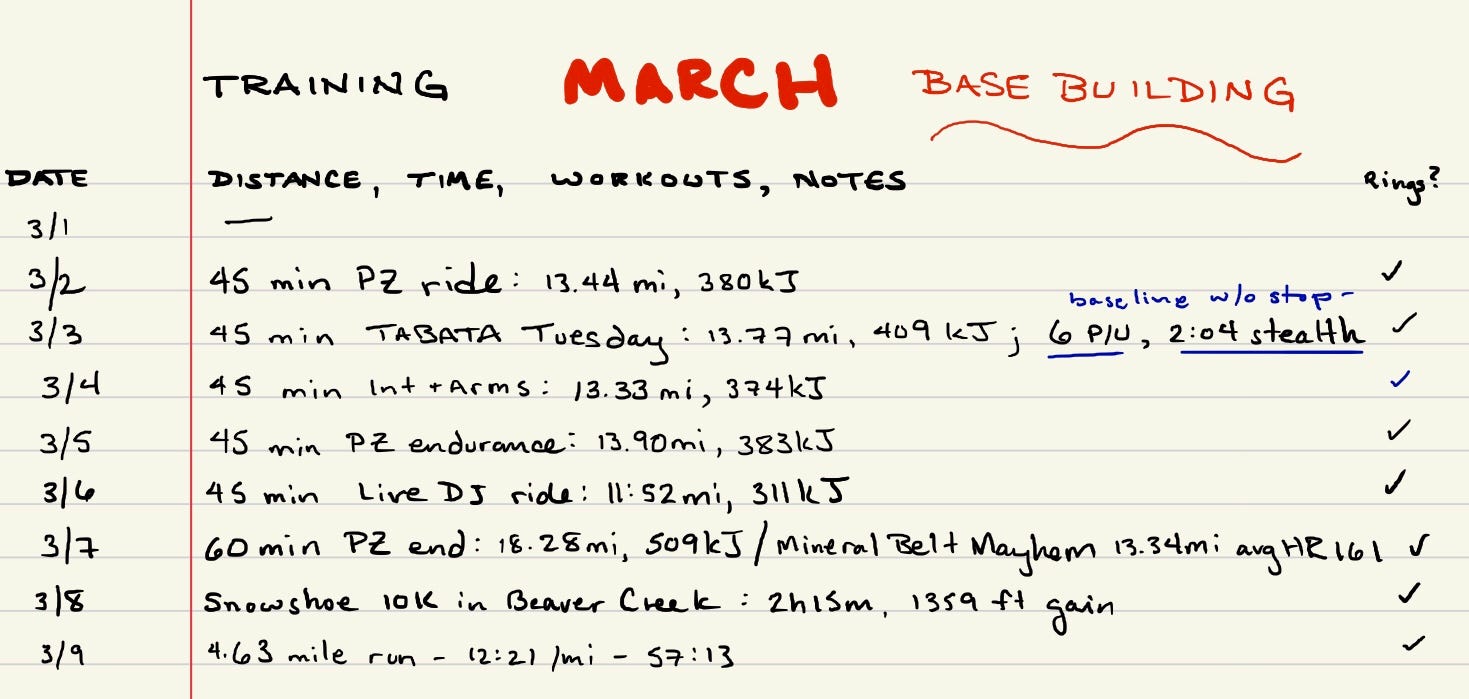 TRAINING MARCH BASE BUILDING
DATE DISTANCE, TIME, WORKOUTS, NOTES Rings?
3/1 —
3/2 45 min PZ ride: 13.44 mi, 380kJ ✓
baseline w/o stop-
3/3 45 min TABATA Tuesday: 13.77mi, 409 kJ; 6 P/U, 2:04 stealth ✓
3/4 45 min Int + Arms: 13.33 mi, 374kJ ✓
3/5 45 min PZ endurance: 13.90mi, 383kJ ✓
3/6 45 min Live DJ ride: 11:52mi, 311kJ ✓
3/7 60min PZ end: 18.28mi, 509kJ/Mineral Belt Mayhem 13.34mi avgHR161 ✓
3/8 Snowshoe 10K in Beaver Creek: 2h15m, 1359 ft gain ✓
3/9 4.63 mile run - 12:21/mi - 57:13 ✓